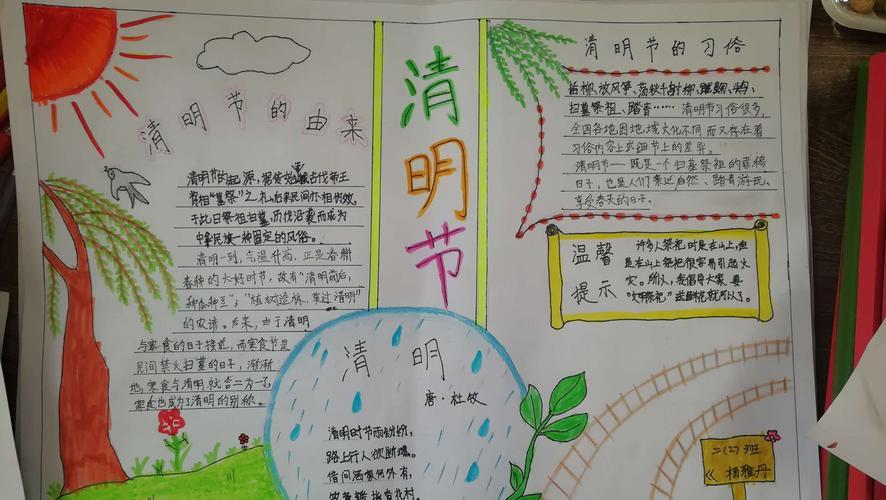 清明节的由来
清明节的起源，据传始于古代帝王
将相"墓祭"之礼，后来民间亦相仿效，
于此日祭祖扫墓，历代沿袭而成为
中华民族一种固定的风俗。
清明一到，气温升高，正是春耕
春种的大好时节，故有"清明前后，
种瓜种豆"；"植树造林，莫过清明"
的农谚。后来，由于清明
与寒食的日子接近，而寒食节是
民间禁火扫墓的日子，渐渐
地，寒食与清明就合二为一了，
寒食也成为了清明的别称。
清明节
清明
唐·杜牧
清明时节雨纷纷，
路上行人欲断魂。
借问酒家何处有，
牧童遥指杏花村。
清明节的习俗
插柳、放风筝、荡秋千、射柳、蹴鞠、
扫墓祭祖、踏青……清明节习俗很多，
全国各地因地域文化不同而又存在着
习俗内容上或细节上的差异。
清明节一既是一个扫墓祭祖的肃穆
日子，也是人们亲近自然、踏青游玩、
享受春天的日子.
温馨
提示
许多人祭祀时是在山上，但
是在山上祭祀很容易引起火
灾。所以，我倡导大家要
"文明祭祀"就可以了。
二(2)班
杨雅丹